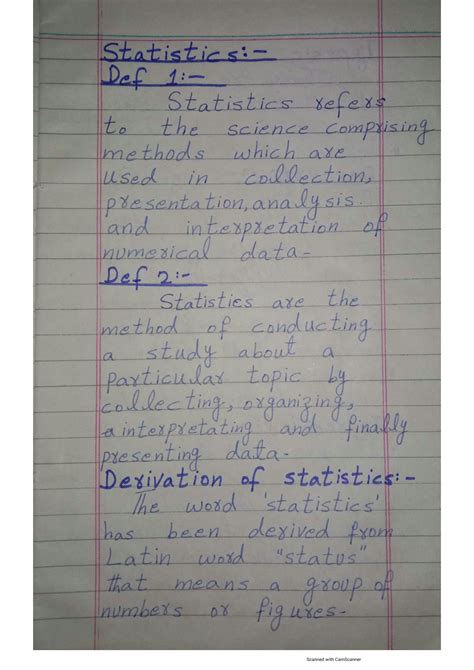 Statistics:-
Def 1:-
Statistics refers
to the science comprising
methods which are
used in collection,
presentation, analysis.
and interpretation of
numerical data-
Def 2:-
Statistics are the
method of conducting
a study about a
particular topic by
collecting, organizing,
interpretating and finally
presenting data-
Derivation of statistics:-
The word 'statistics'
has been derived from
Latin word "status"
that means a group of
numbers or figures-
Scanned with CamScanner